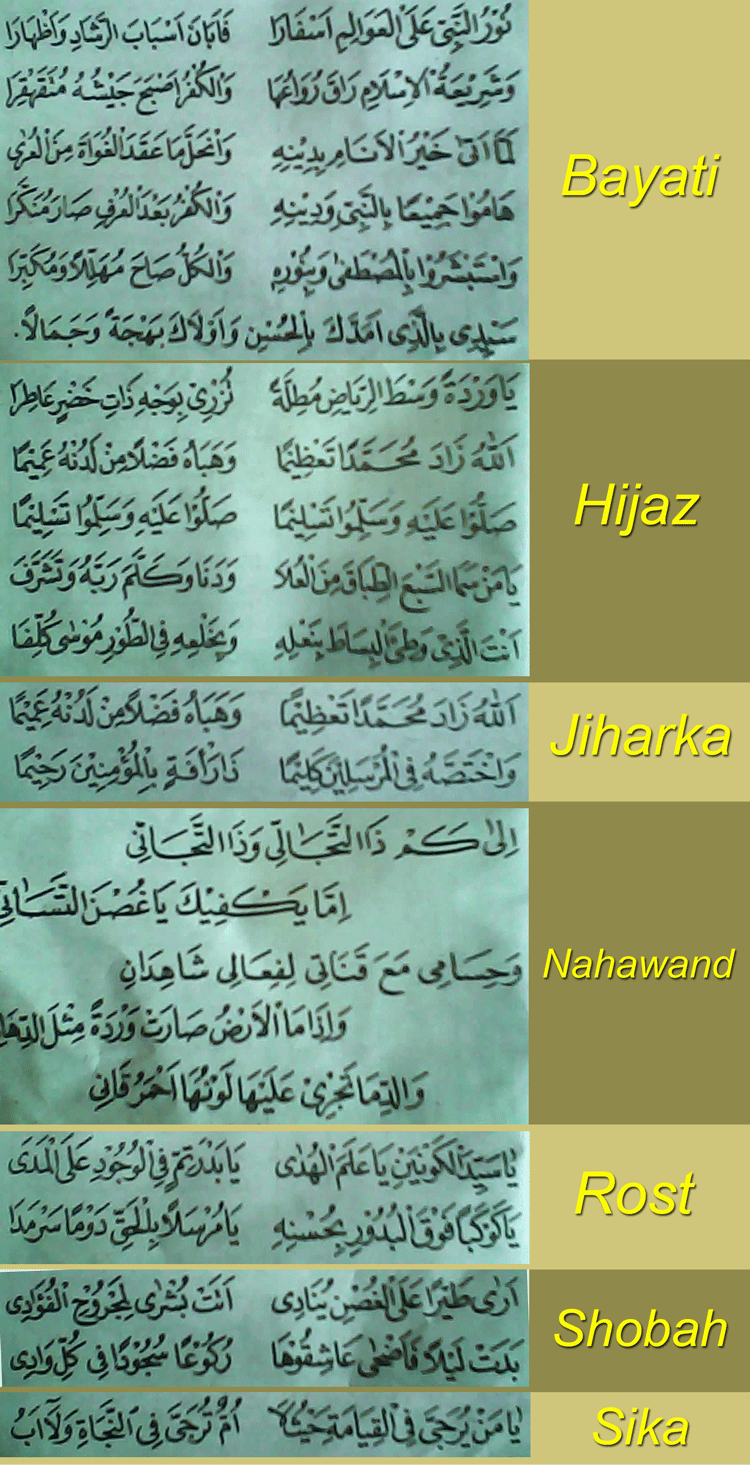 نُوْرُ النَّبِيِّ عَلَى الْعَوَالِمِ اَسْفَارَا فَاَبَانَ اَسْبَابَ الرَّشَادِ وَاَظْهَارَا
وَشَرِيْعَةُ الْاِسْلَامِ رَاقَ رُوَاءُهَا وَالْكُفْرُ اَصْبَحَ جَيْشُهُ مُتَقَهْقِرًا
لَمَّا اَتَى خَيْرُ الْاَنَامِ بِدِيْنِهِ وَانْحَلَّ مَا عَقَدَ الْغُوَاةُ مِنَ الْعُرٰى
هَامُوْا جَمِيْعًا بِالنَّبِيِّ وَدِيْنِهِ وَالْكُفْرُ بَعْدَ الْعُرْفِ صَارَ مُنَكَّرًا
وَاسْتَبْشَرُوْا بِالْمُصْطَفٰى وَبِنُوْرِهِ وَالْكُلُّ صَاحَ مُهَلِّلًا وَمُكَبِّرًا
سَيِّدِى بِالَّذِى اَمَدَّكَ بِالْحُسْنِ وَاَوْلَاكَ بَهْجَةً وَجَمَالًا.
Bayati
يَا وَرْدَةً وَسْطَ الرِّيَاضِ مُطِلَّةً تُزْرِىْ بِوَجْهِ ذَاتِ خَضْرٍ عَاطِرًا
اَللهُ زَادَ مُحَمَّدًا تَعْظِيْمًا وَهَبَاهُ فَضْلًا مِنْ لَدُنْهُ عَمِيْمًا
صَلُّوْا عَلَيْهِ وَسَلِّمُوْا تَسْلِيْمًا صَلُّوْا عَلَيْهِ وَسَلِّمُوْا تَسْلِيْمًا
يَا مَنْ سَمَا السَّبْعَ الطِّبَاقَ مِنَ الْعُلَا وَدَنَا وَكَلَّمَ رَبَّهُ وَتَشَرَّفَ
اَنْتَ الَّذِىْ وَطِئَ الْبِسَاطَ بِنَعْلِهِ وَبِخَلْعِهِ فِى الطُّوْرِ مُوْسٰى كُلِّفَا
Hijaz
اَللهُ زَادَ مُحَمَّدًا تَعْظِيْمًا وَهَبَاهُ فَضْلًا مِنْ لَدُنْهُ عَمِيْمًا
وَاخْتَصَّهُ فِى الْمُرْسَلِيْنَ كَلِيْمًا ذَا رَأْفَةٍ بِالْمُؤْمِنِيْنَ رَحِيْمًا
Jiharka
اِلٰى كَمْ ذَا التَّجَالِّى وَذَا التَّجَانِّى
اِمَّا يَكْفِيْكَ يَا غُصْنَ التَّسَانِى
وَحِسَامِى مَعَ قَنَاتِى لِفِعَالِى شَاهِدَانِ
وَاِذَا مَا الْاَرْضُ صَارَتْ وَرْدَةً مِثْلَ الدِّهَا
وَالدِّمَا تَجْرِىْ عَلَيْهَا لَوْنُهَا اَحْمَرُ قَانِى
Nahawand
يَا سَيِّدَ الْكَوْنَيْنِ يَا عَلَمَ الْهُدٰى يَا بَدْرَ تِمٍّ فِى الْوُجُوْدِ عَلَى الْمَدَى
يَا كَوْكَبًا فَوْقَ الْبُدُوْرِ بِحُسْنِهِ يَا مُرْسَلًا بِالْحَقِّ دَوْمًا سَرْمَدَا
Rost
اَرٰى طَيْرًا عَلَى الْغُصْنِ يُنَادِى اَنْتَ بُشْرٰى لِمَجْرُوْحِ الْفُؤَادِى
بَدَتْ لَيْلًا فَاَضْحٰى عَاشِقُوْهَا رُكُوْعًا سُجُوْدًا فِى كُلِّ وَادِى
Shobah
يَا مَنْ يُرْجَى فِى الْقِيَامَةِ حَيْثُ لَا اُمٌّ تُرَجَّى فِى النَّجَاةِ وَلَا اَبُ
Sika